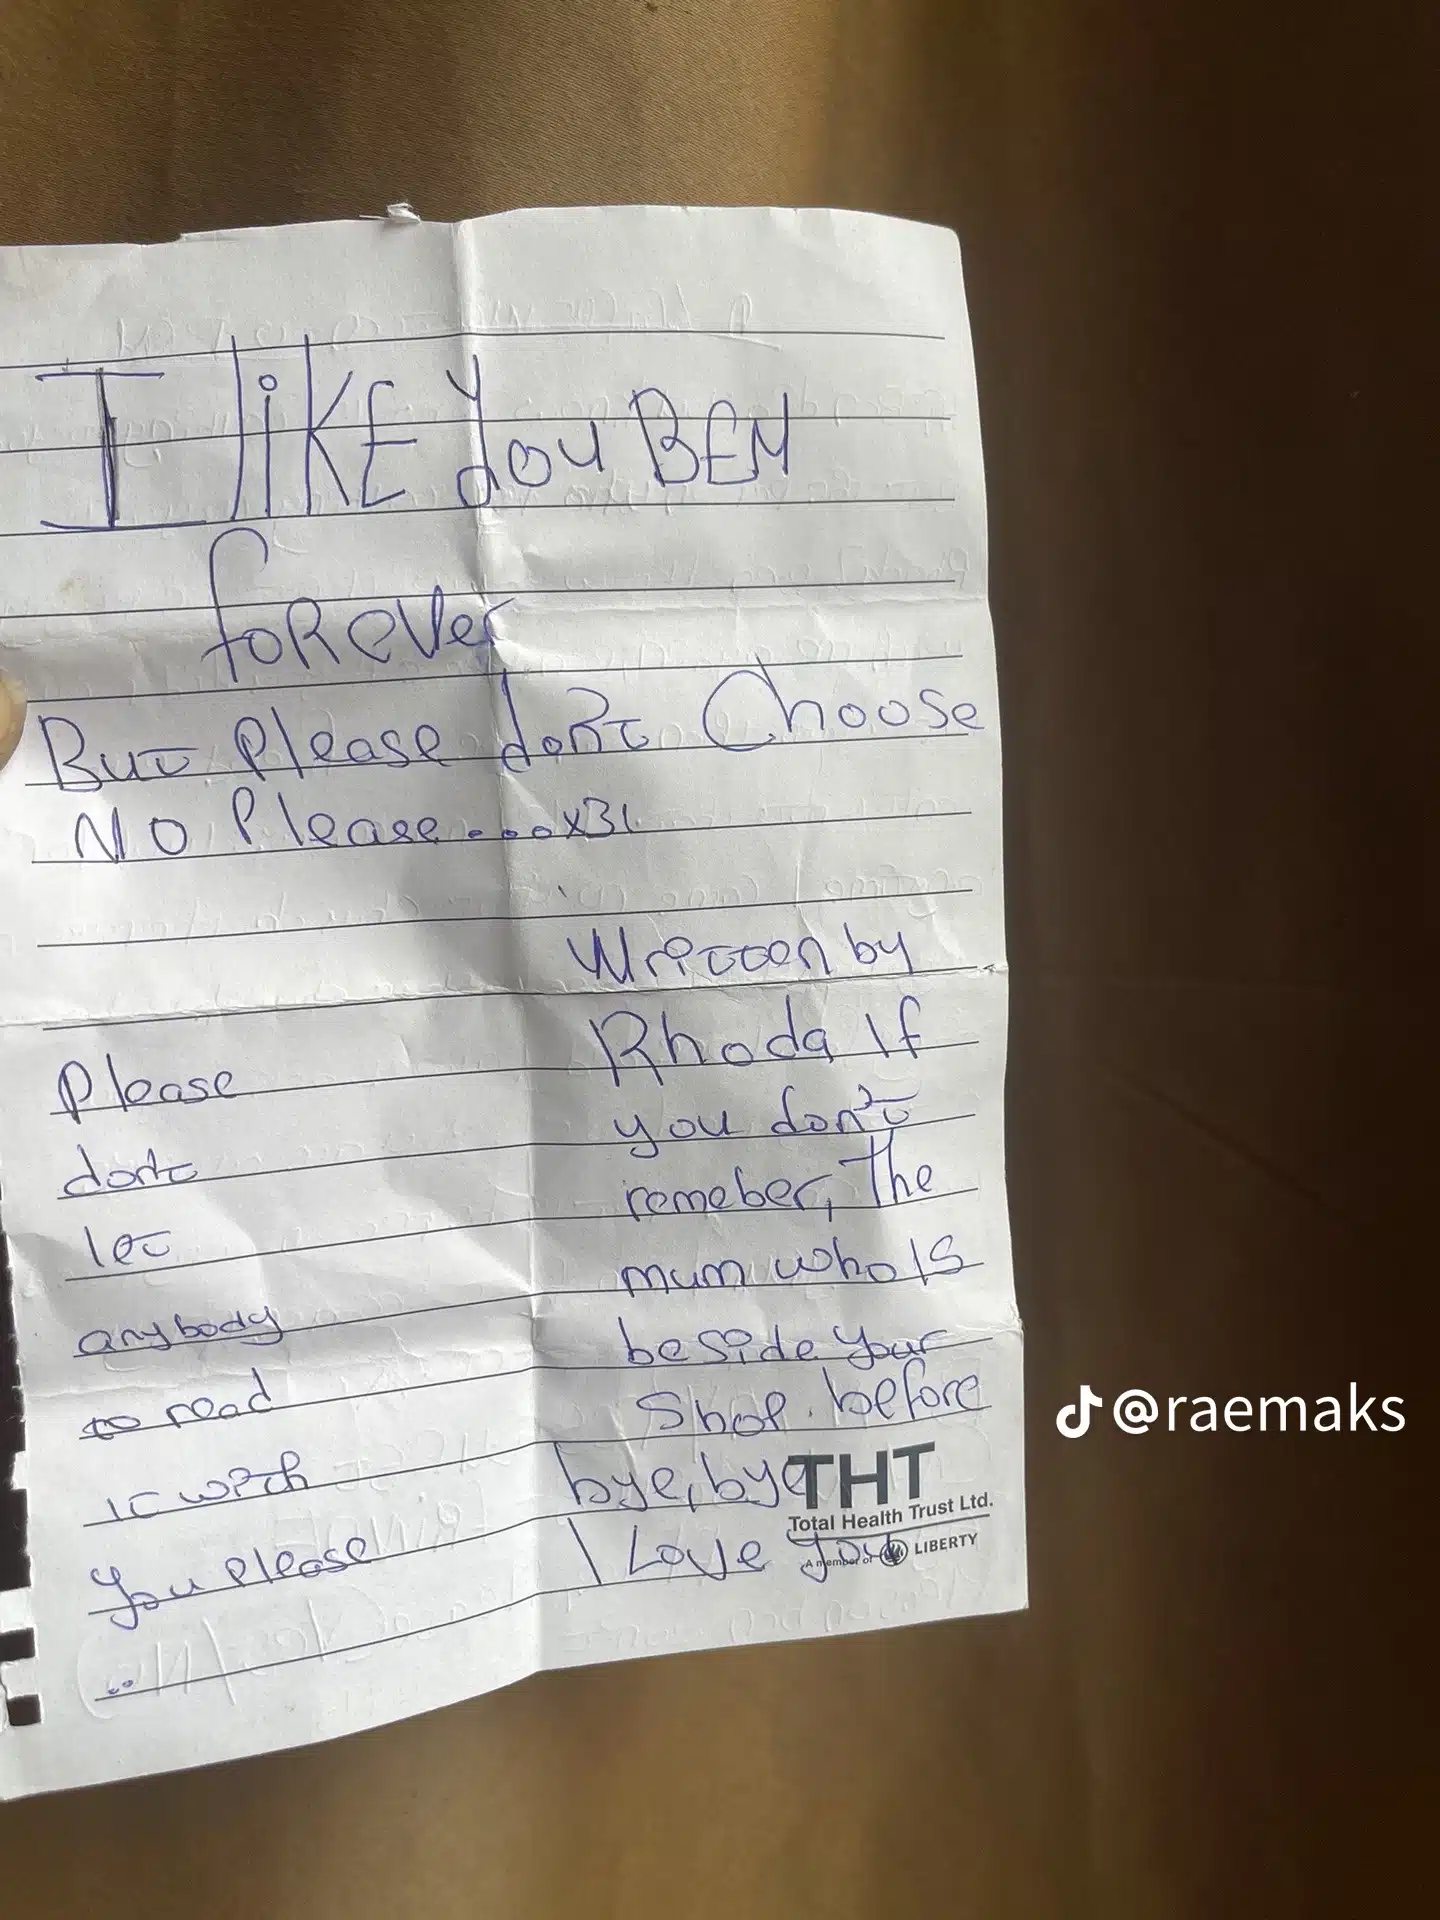 I likE you BEN
foRever
But Please don't Choose
No Please....x31
Written by
Rhoda If
you don't
remeber, The
mum who Is
beside your
Shop. before
bye, bye
I Love you
Please
don't
let
anybody
to read
It with
you Please
..
THT
Total Health Trust Ltd.
A member of LIBERTY
@raemaks